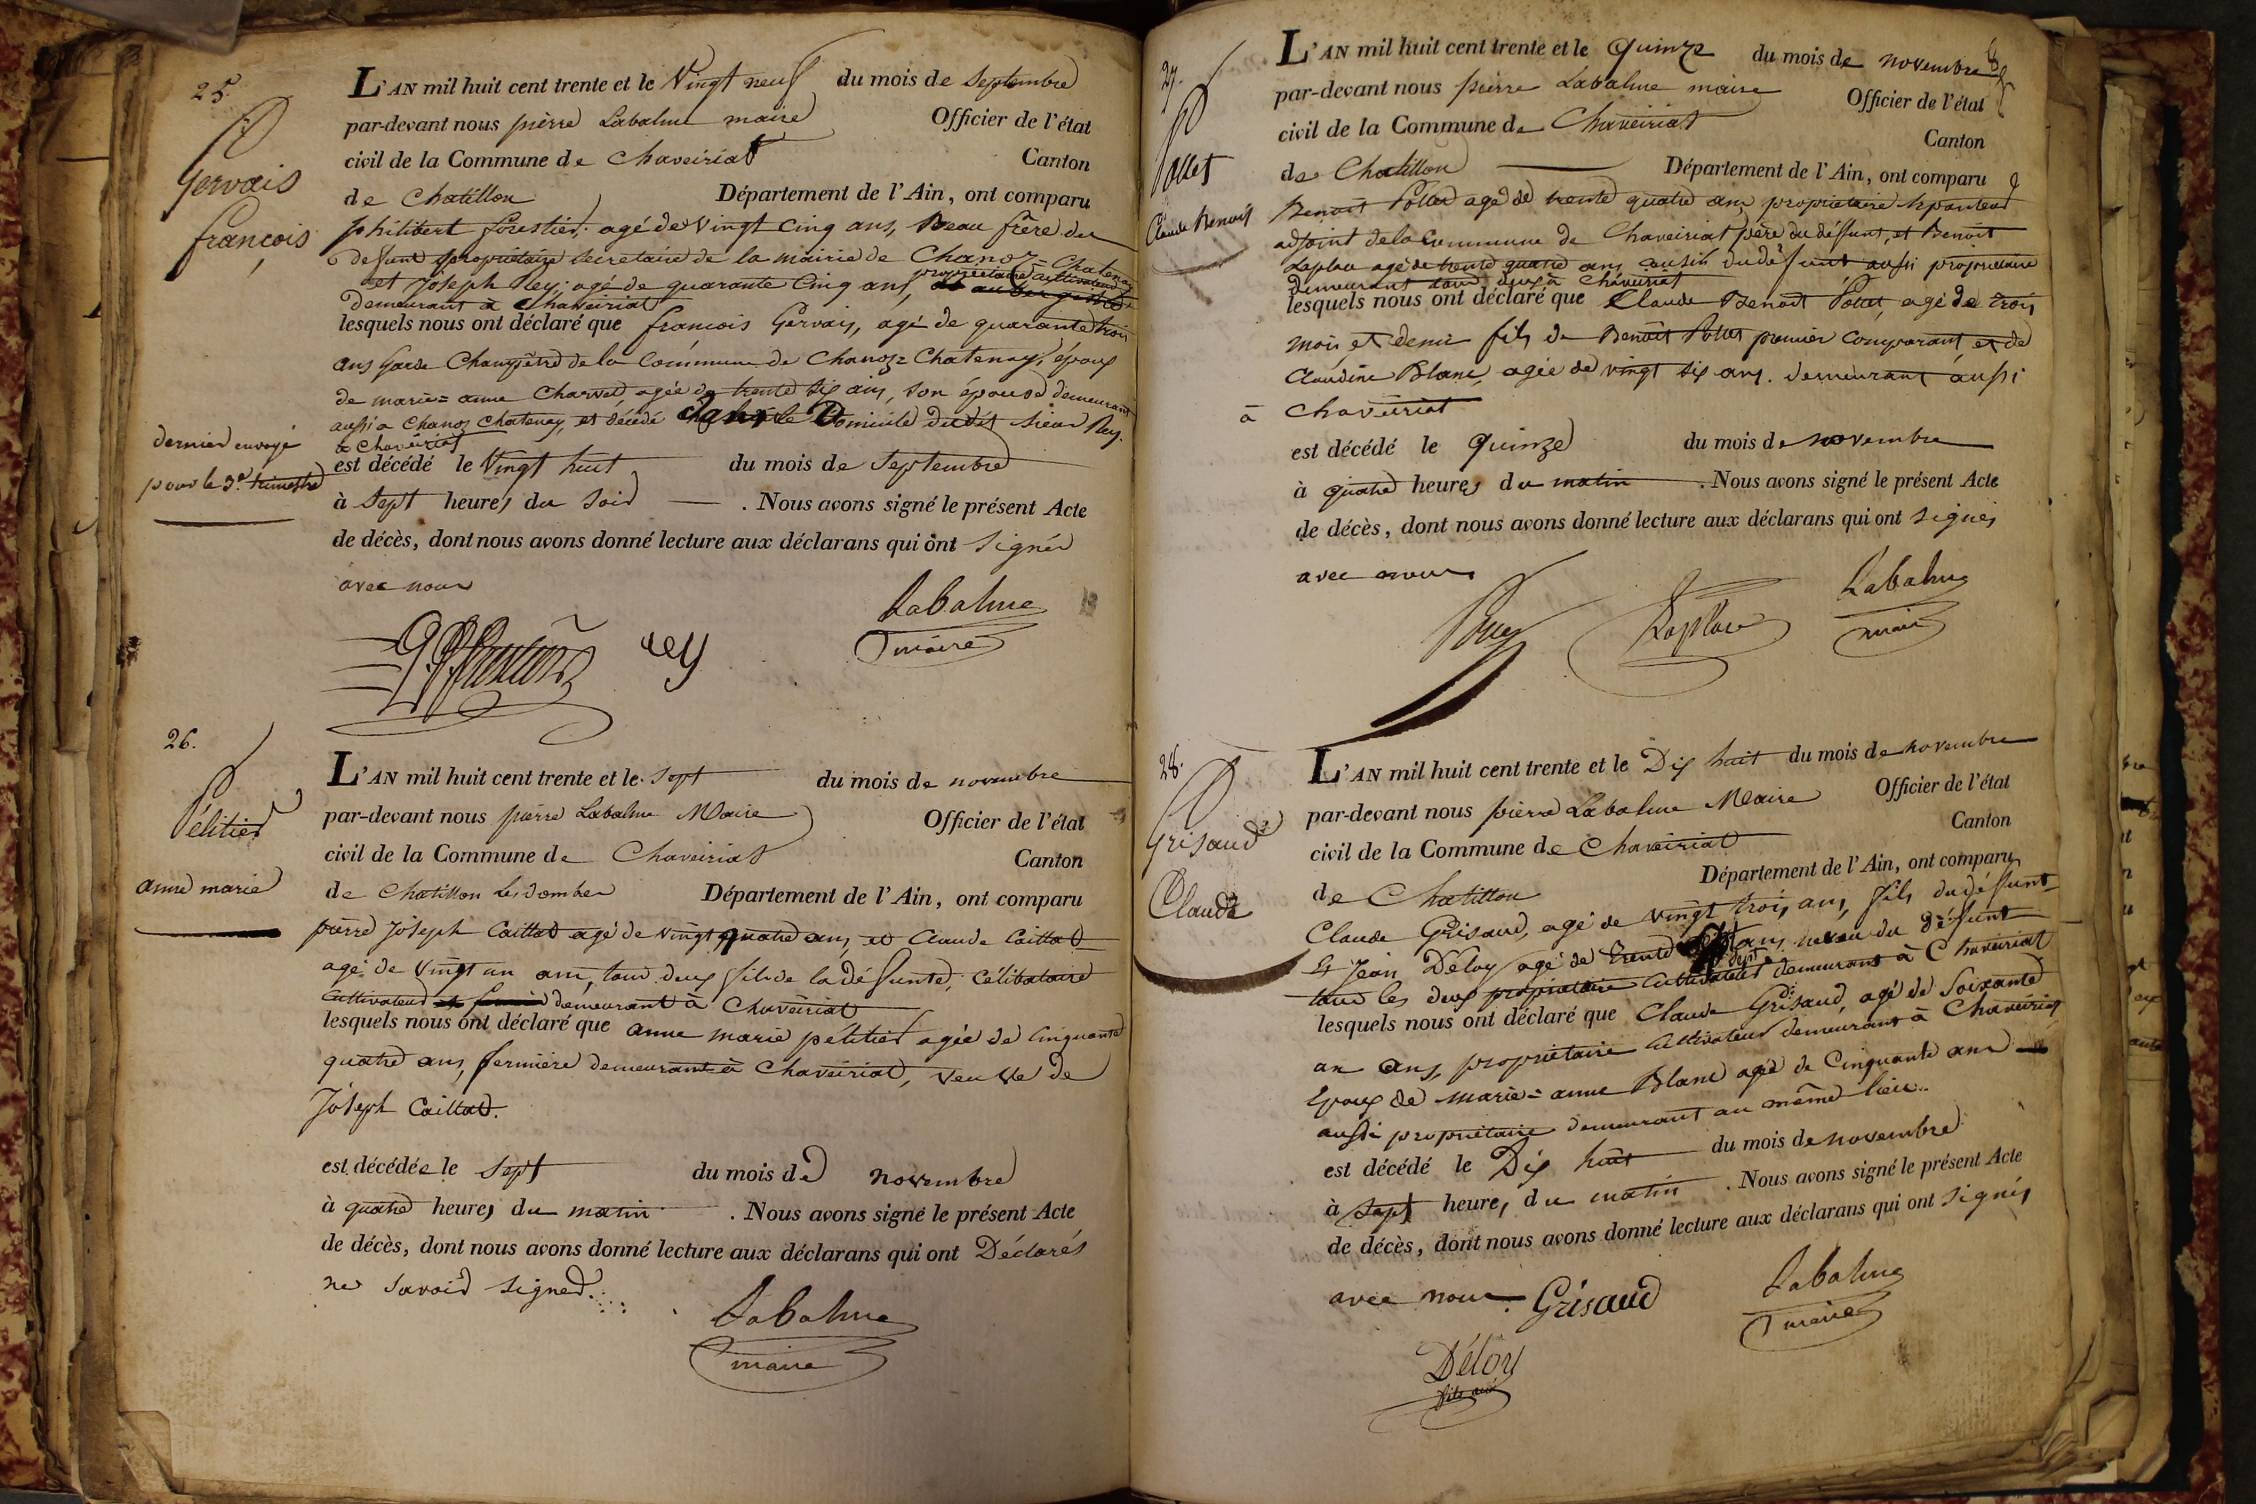 25.
Gervais
françois
L'AN mil huit cent trente et le Vingt neuf du mois de Septembre
par-devant nous pierre Labalme maire Officier de l'état
civil de la Commune de Chaveiriat Canton
de Chatillon Département de l'Ain, ont comparu
philibert forestier agé de vingt cinq ans, Beau frère du
defunt propriétaire secretaire de la mairie de Chanoz = Chatenay
et Joseph Rey agé de quarante Cinq ans, propriétaire Cultivateur
demeurant à Chaveiriat
lesquels nous ont déclaré que francois Gervais, agé de quarante trois
ans Garde Champêtre de la Commune de Chanoz = Chatenay, époux
de marie = anne Charvet agée de trente six ans, son épouse demeurant
aussi a Chanoz Chatenay, et décédé dans le Domicile dudit sieur Rey.
a Chaveiriat
dernier envoyé
pour le 3e. trimestre
est décédé le Vingt huit du mois de Septembre
à Sept heures du Soir . Nous avons signé le présent Acte
de décès, dont nous avons donné lecture aux déclarans qui ont signés
avec nous
Labalme
maire
rey
26.
Pélitier
anne marie
L'AN mil huit cent trente et le Sept du mois de novembre
par-devant nous pierre Labalme Maire Officier de l'état
civil de la Commune de Chaveiriat Canton
de Chatillon les dombes Département de l'Ain, ont comparu
pierre Joseph Caillat agé de vingt quatre ans, et Claude Caillat
agé de Vingt un ans, tous deux fils de la défunte, célibataire
Cultivateur demeurant à Chaveiriat
lesquels nous ont déclaré que anne marie pélitier agée de Cinquante
quatre ans, fermière demeurante à Chaveiriat, veuve de
Joseph Caillat.
est décédée le Sept du mois de novembre
à quatre heures du matin . Nous avons signé le présent Acte
de décès, dont nous avons donné lecture aux déclarans qui ont Déclarés
ne savoir signer.
Labalme
maire
27.
Pollet
Claude Benoit
L'AN mil huit cent trente et le Quinze du mois de novembre
par-devant nous pierre Labalme maire Officier de l'état
civil de la Commune de Chaveiriat Canton
de Chatillon Département de l'Ain, ont comparu
Benoit Pollet agé de trente quatre ans, propriétaire
adjoint de la Commune de Chaveiriat père du défunt, et Benoit
Laplace agé de trente quatre ans, cousin du défunt aussi propriétaire
demeurant tous deux à Chaveiriat
lesquels nous ont déclaré que Claude Benoit Pollet, agé de trois
mois et demi fils de Benoit Pollet premier Comparant, et de
Claudine Blanc, agée de vingt six ans. demeurant aussi
à Chaveiriat
est décédé le Quinze du mois de novembre
à quatre heures du matin . Nous avons signé le présent Acte
de décès, dont nous avons donné lecture aux déclarans qui ont signés
avec nous
Laplace
Labalme
maire
28.
Grisaud
Claude
L'AN mil huit cent trente et le Dix huit du mois de novembre
par-devant nous pierre Labalme Maire Officier de l'état
civil de la Commune de Chaveiriat Canton
de Chatillon Département de l'Ain, ont comparu
Claude Grisaud, agé de vingt trois ans, fils du défunt
Et Jean Déloy agé de trente sept ans, neveu du défunt
tous les deux propriétaire Cultivateur demeurans à Chaveiriat
lesquels nous ont déclaré que Claude Grisaud, agé de Soixante
un ans, propriétaire Cultivateur demeurans à Chaveiriat
Epoux de marie = anne Blanc agée de Cinquante ans
aussi propriétaire demeurant au même lieu.
est décédé le Dix huit du mois de novembre
à Sept heures du matin . Nous avons signé le présent Acte
de décès, dont nous avons donné lecture aux déclarans qui ont signés
avec nous. Grisaud
Labalme
maire
Déloy
fils ainé